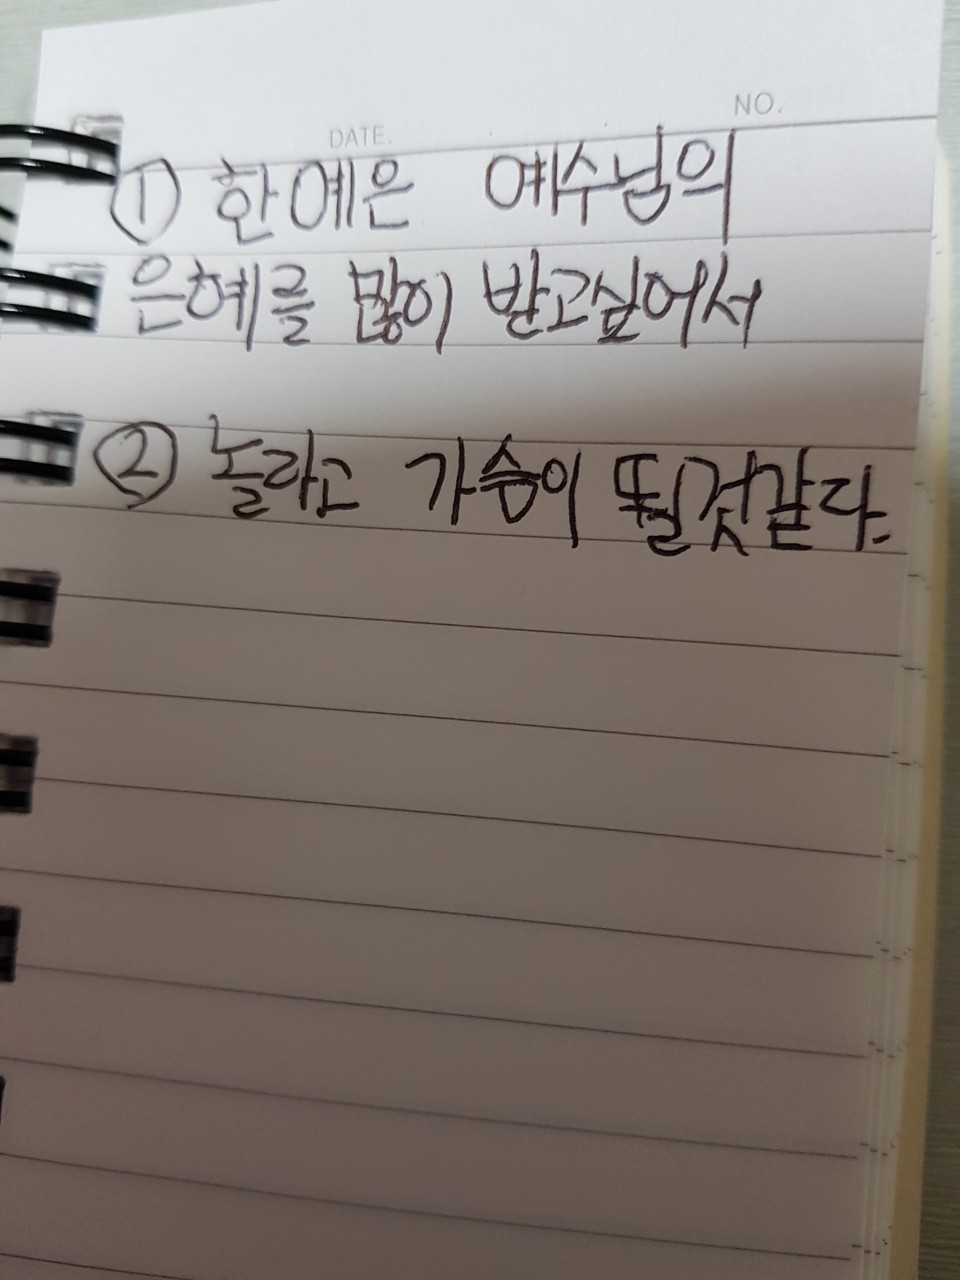 NO.
DATE.
① 한예은 예수님의
은혜를 많이 받고싶어서
② 놀라고 가슴이 뛸것같다.